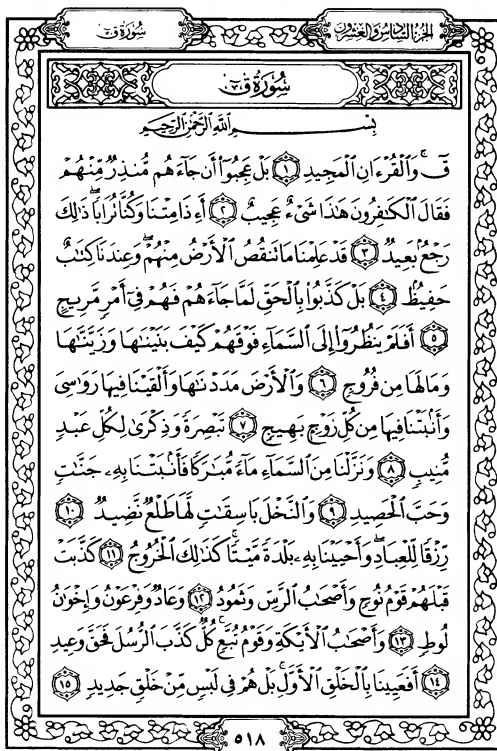 سُورَةُ ق
الجُزْءُ السَّادِسُ وَالعِشْرُونَ
سُورَةُ ق
بِسْمِ اللَّهِ الرَّحْمَٰنِ الرَّحِيمِ
قٓۚ وَٱلْقُرْءَانِ ٱلْمَجِيدِ ١ بَلْ عَجِبُوٓا۟ أَن جَآءَهُم مُّنذِرٌ مِّنْهُمْ
فَقَالَ ٱلْكَٰفِرُونَ هَٰذَا شَىْءٌ عَجِيبٌ ٢ أَءِذَا مِتْنَا وَكُنَّا تُرَابًاۖ ذَٰلِكَ
رَجْعٌۢ بَعِيدٌ ٣ قَدْ عَلِمْنَا مَا تَنقُصُ ٱلْأَرْضُ مِنْهُمْۖ وَعِندَنَا كِتَٰبٌ
حَفِيظٌۢ ٤ بَلْ كَذَّبُوا۟ بِٱلْحَقِّ لَمَّا جَآءَهُمْ فَهُمْ فِىٓ أَمْرٍ مَّرِيجٍ
٥ أَفَلَمْ يَنظُرُوٓا۟ إِلَى ٱلسَّمَآءِ فَوْقَهُمْ كَيْفَ بَنَيْنَٰهَا وَزَيَّنَّٰهَا
وَمَا لَهَا مِن فُرُوجٍ ٦ وَٱلْأَرْضَ مَدَدْنَٰهَا وَأَلْقَيْنَا فِيهَا رَوَٰسِىَ
وَأَنۢبَتْنَا فِيهَا مِن كُلِّ زَوْجٍۭ بَهِيجٍ ٧ تَبْصِرَةً وَذِكْرَىٰ لِكُلِّ عَبْدٍ
مُّنِيبٍ ٨ وَنَزَّلْنَا مِنَ ٱلسَّمَآءِ مَآءً مُّبَٰرَكًا فَأَنۢبَتْنَا بِهِۦ جَنَّٰتٍ
وَحَبَّ ٱلْحَصِيدِ ٩ وَٱلنَّخْلَ بَاسِقَٰتٍ لَّهَا طَلْعٌ نَّضِيدٌ ١٠
رِّزْقًا لِّلْعِبَادِۖ وَأَحْيَيْنَا بِهِۦ بَلْدَةً مَّيْتًاۚ كَذَٰلِكَ ٱلْخُرُوجُ ١١ كَذَّبَتْ
قَبْلَهُمْ قَوْمُ نُوحٍ وَأَصْحَٰبُ ٱلرَّسِّ وَثَمُودُ ١٢ وَعَادٌ وَفِرْعَوْنُ وَإِخْوَٰنُ
لُوطٍ ١٣ وَأَصْحَٰبُ ٱلْأَيْكَةِ وَقَوْمُ تُبَّعٍۚ كُلٌّ كَذَّبَ ٱلرُّسُلَ فَحَقَّ وَعِيدِ
١٤ أَفَعَيِينَا بِٱلْخَلْقِ ٱلْأَوَّلِۚ بَلْ هُمْ فِى لَبْسٍ مِّنْ خَلْقٍ جَدِيدٍ ١٥
٥١٨